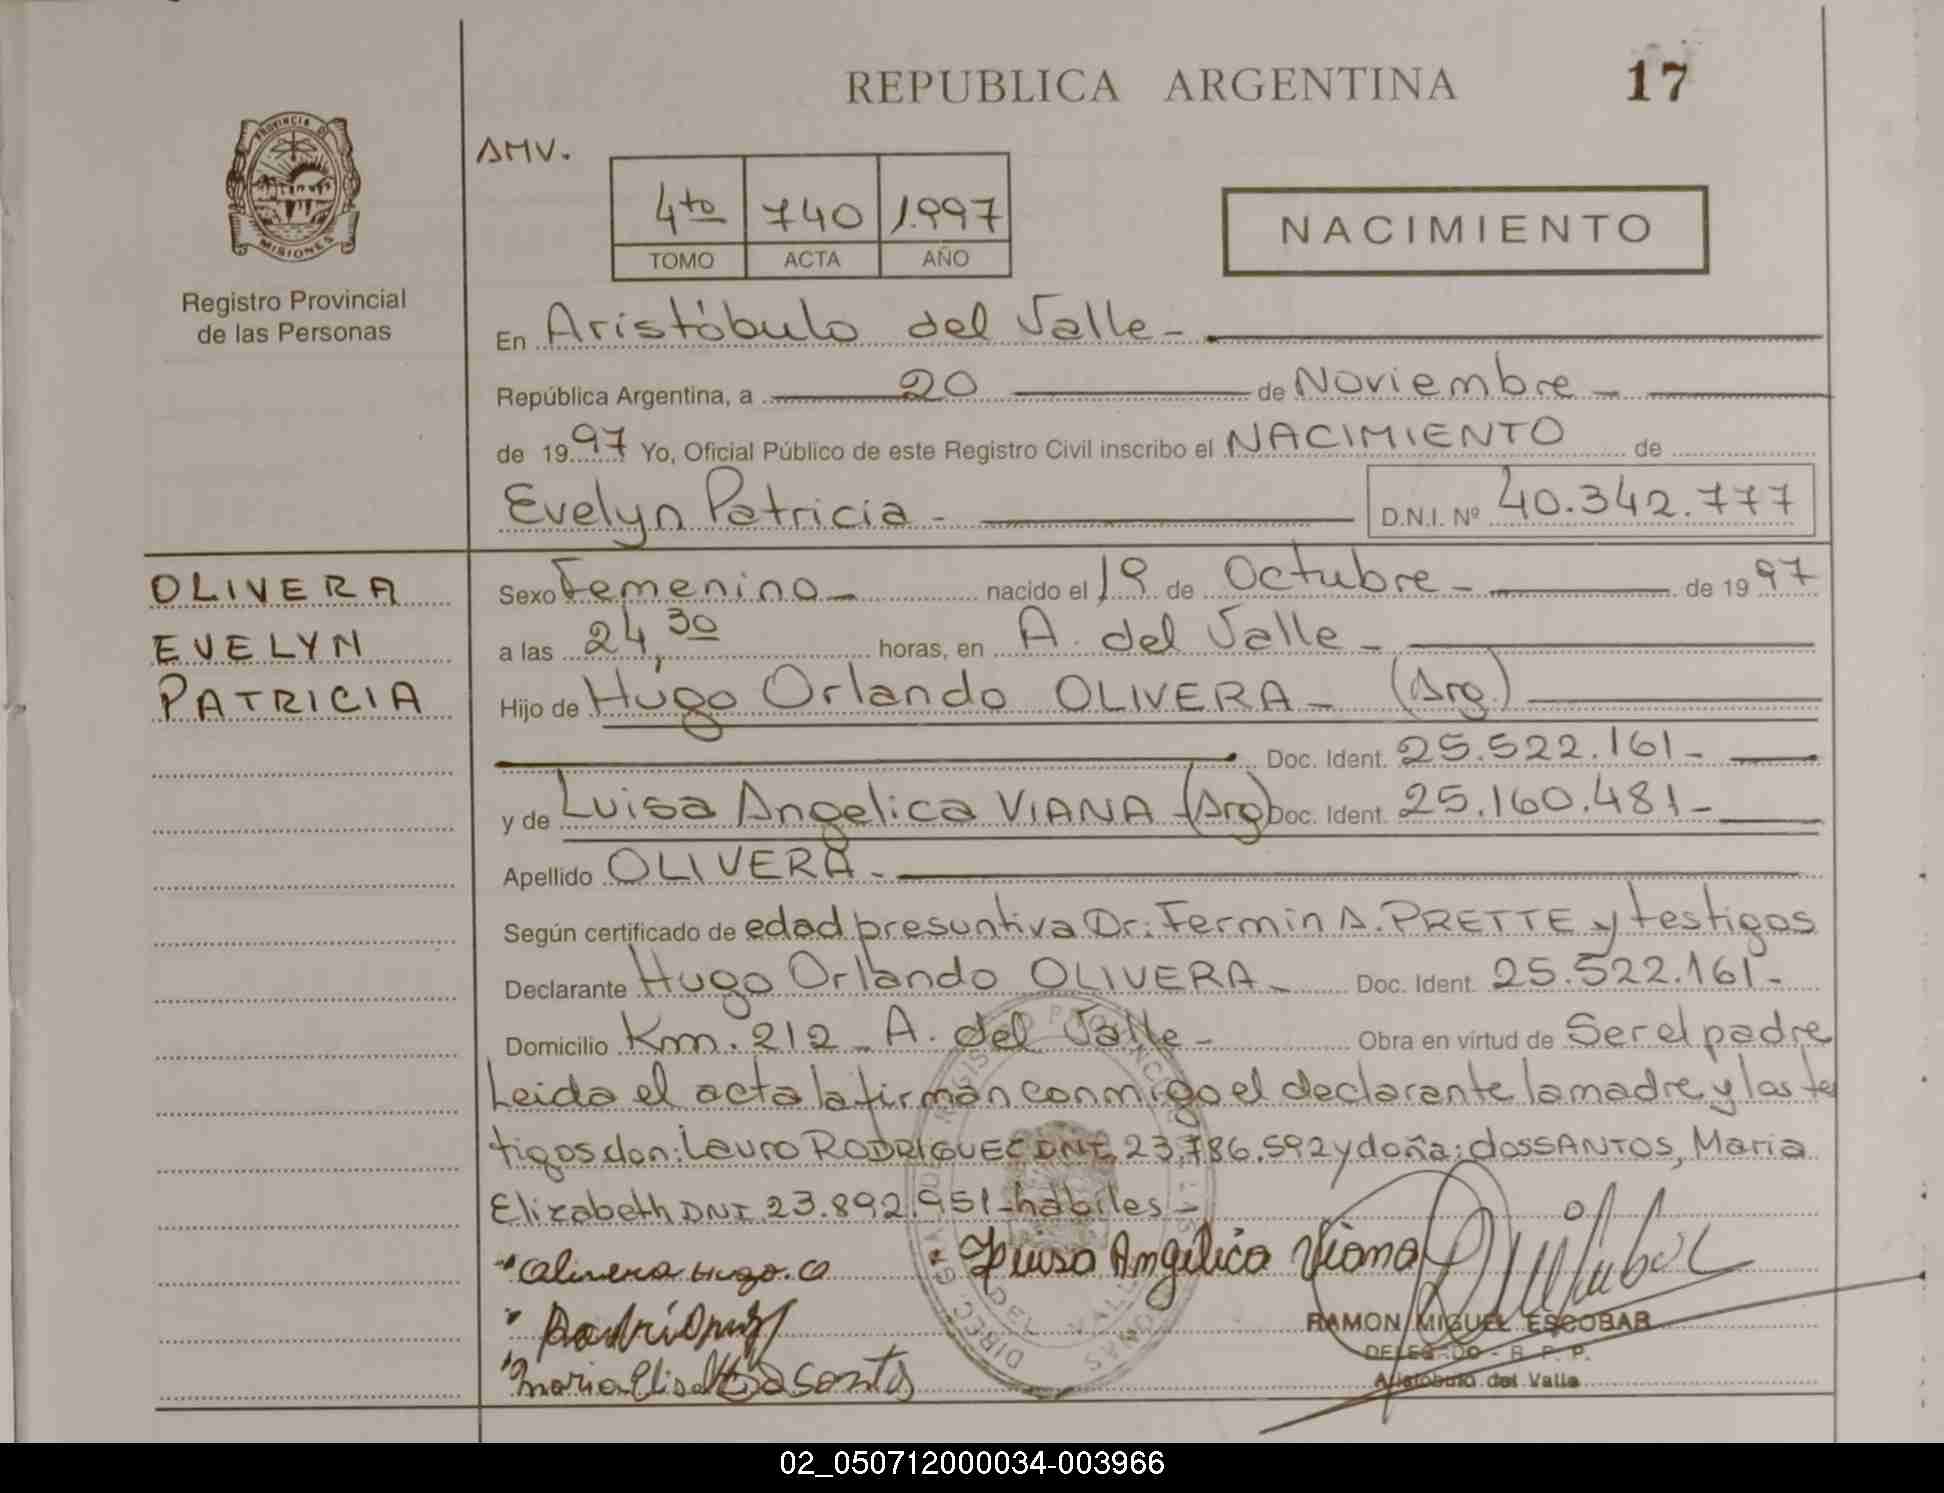 REPUBLICA ARGENTINA
17
PROVINCIA DE
MISIONES
Registro Provincial
de las Personas
AMV.
4to 740 1.997
TOMO ACTA AÑO
NACIMIENTO
En Aristóbulo del Valle -
República Argentina, a 20 de Noviembre -
de 1997 Yo, Oficial Público de este Registro Civil inscribo el NACIMIENTO de
Evelyn Patricia - D.N.I. Nº 40.342.777
OLIVERA
EVELYN
PATRICIA
Sexo Femenino - nacido el 19 de Octubre - de 1997
a las 24,30 horas, en A. del Valle -
Hijo de Hugo Orlando OLIVERA - (Arg.)
Doc. Ident. 25.522.161 -
y de Luisa Angelica VIANA - (Arg) Doc. Ident. 25.160.481 -
Apellido OLIVERA -
Según certificado de edad presuntiva Dr: Fermin A. PRETTE y testigos
Declarante Hugo Orlando OLIVERA - Doc. Ident. 25.522.161 -
Domicilio Km. 212 - A. del Valle - Obra en virtud de Ser el padre
Leida el acta la firman conmigo el declarante la madre y los tes
tigos don: Lauro RODRIGUEZ DNI 23.786.592 y doña: dosSANTOS, Maria
Elizabeth DNI 23.892.951 - habiles -
Olivera Hugo. O
Luisa Angelica Viana
Rodriguez
RAMON MIGUEL ESCOBAR
DELEGADO - R. P. P.
Aristobulo del Valle
02_050712000034-003966